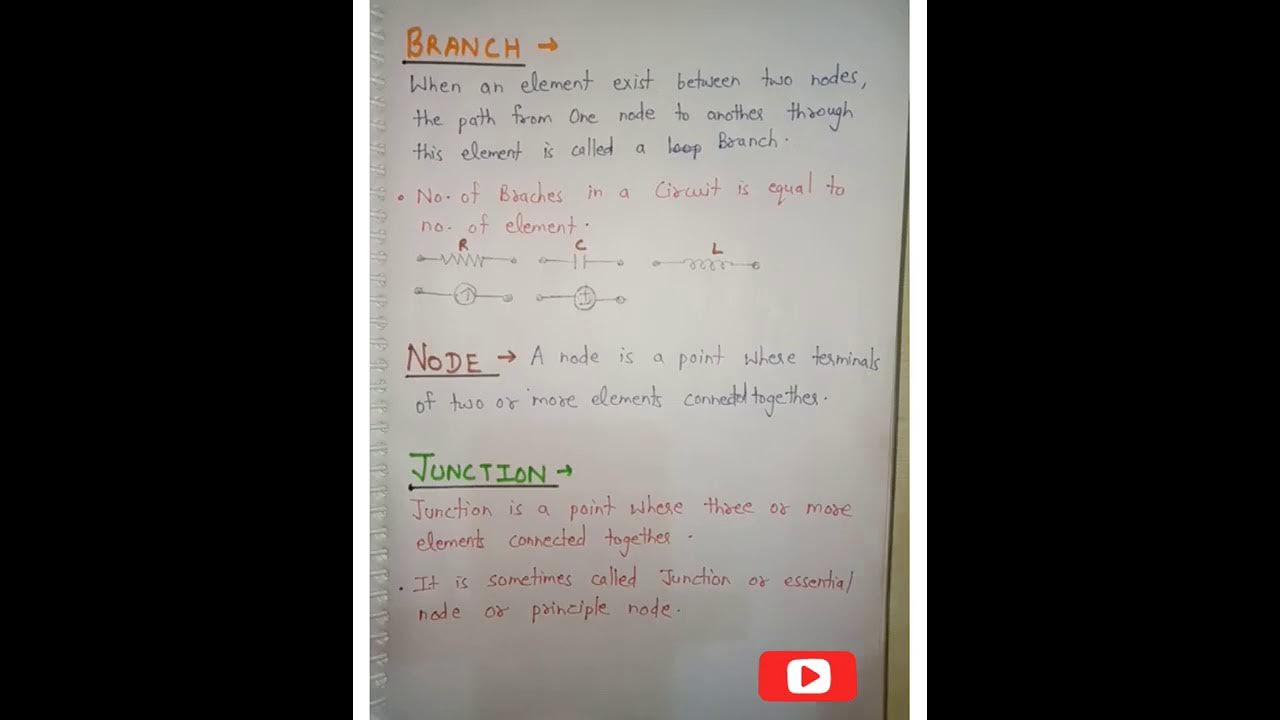 BRANCH →
When an element exist between two nodes,
the path from One node to another through
this element is called a loop Branch.
• No. of Braches in a Circuit is equal to
no. of element.
R C L
NODE → A node is a point where terminals
of two or more elements connected together.
JUNCTION →
Junction is a point where three or more
elements connected together.
• It is sometimes called Junction or essential
node or principle node.